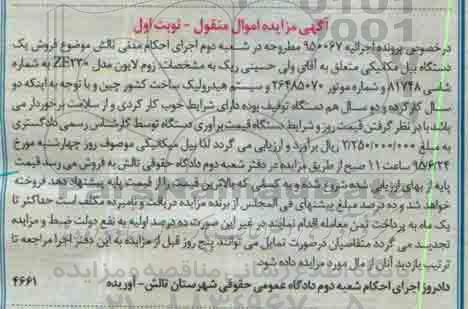 آگهی مزایده اموال منقول - نوبت اول
درخصوص پرونده اجرائیه ۹۵۰۰۶۷ مطروحه در شعبه دوم اجرای احکام مدنی تالش موضوع فروش یک
دستگاه بیل مکانیکی متعلق به آقای ولی حسینی ریک به مشخصات: زوم لایون مدل ZE۲۳۰ به شماره
شاسی ۸۱۷۴۸ و شماره موتور ۲۶۴۸۵۰۷۰ و سیستم هیدرولیک ساخت کشور چین و با توجه به اینکه دو
سال کارکرده و دو سال هم دستگاه توقیف بوده دارای شرایط خوب کار کردی و از سلامت برخوردار می
باشد با در نظر گرفتن قیمت روز و شرایط دستگاه قیمت برآوری دستگاه توسط کارشناس رسمی دادگستری
به مبلغ ۲/۲۵۰/۰۰۰/۰۰۰ ریال برآورد و ارزیابی می گردد لذا بیل میکانیکی موصوف روز چهارشنبه مورخ
۹۵/۶/۲۴ ساعت ۱۱ صبح از طریق مزایده در دفتر شعبه دوم دادگاه حقوقی تالش به فروش می رسد قیمت
پایه از بهای ارزیابی شده شروع شده و به کسانی که بالاترین قیمت را از قیمت پایه پیشنهاد دهد فروخته
خواهد شد و ده درصد مبلغ پیشنهای فی المجلس از برنده مزایده دریافت و نامبرده مکلف است حداکثر تا
یک ماه به پرداخت ثمن معامله اقدام نمایند در غیر این صورت ده درصد اولیه به نفع دولت ضبط و مزایده
تجدید می گردد متقاضیان درصورت تمایل می توانند پنج روز قبل از مزایده به این دفتر اجرا مراجعه تا
ترتیب بازدید آنان از مال مورد مزایده داده شود.
دادروز اجرای احکام شعبه دوم دادگاه عمومی حقوقی شهرستان تالش - آوریده ۴۶۶۱